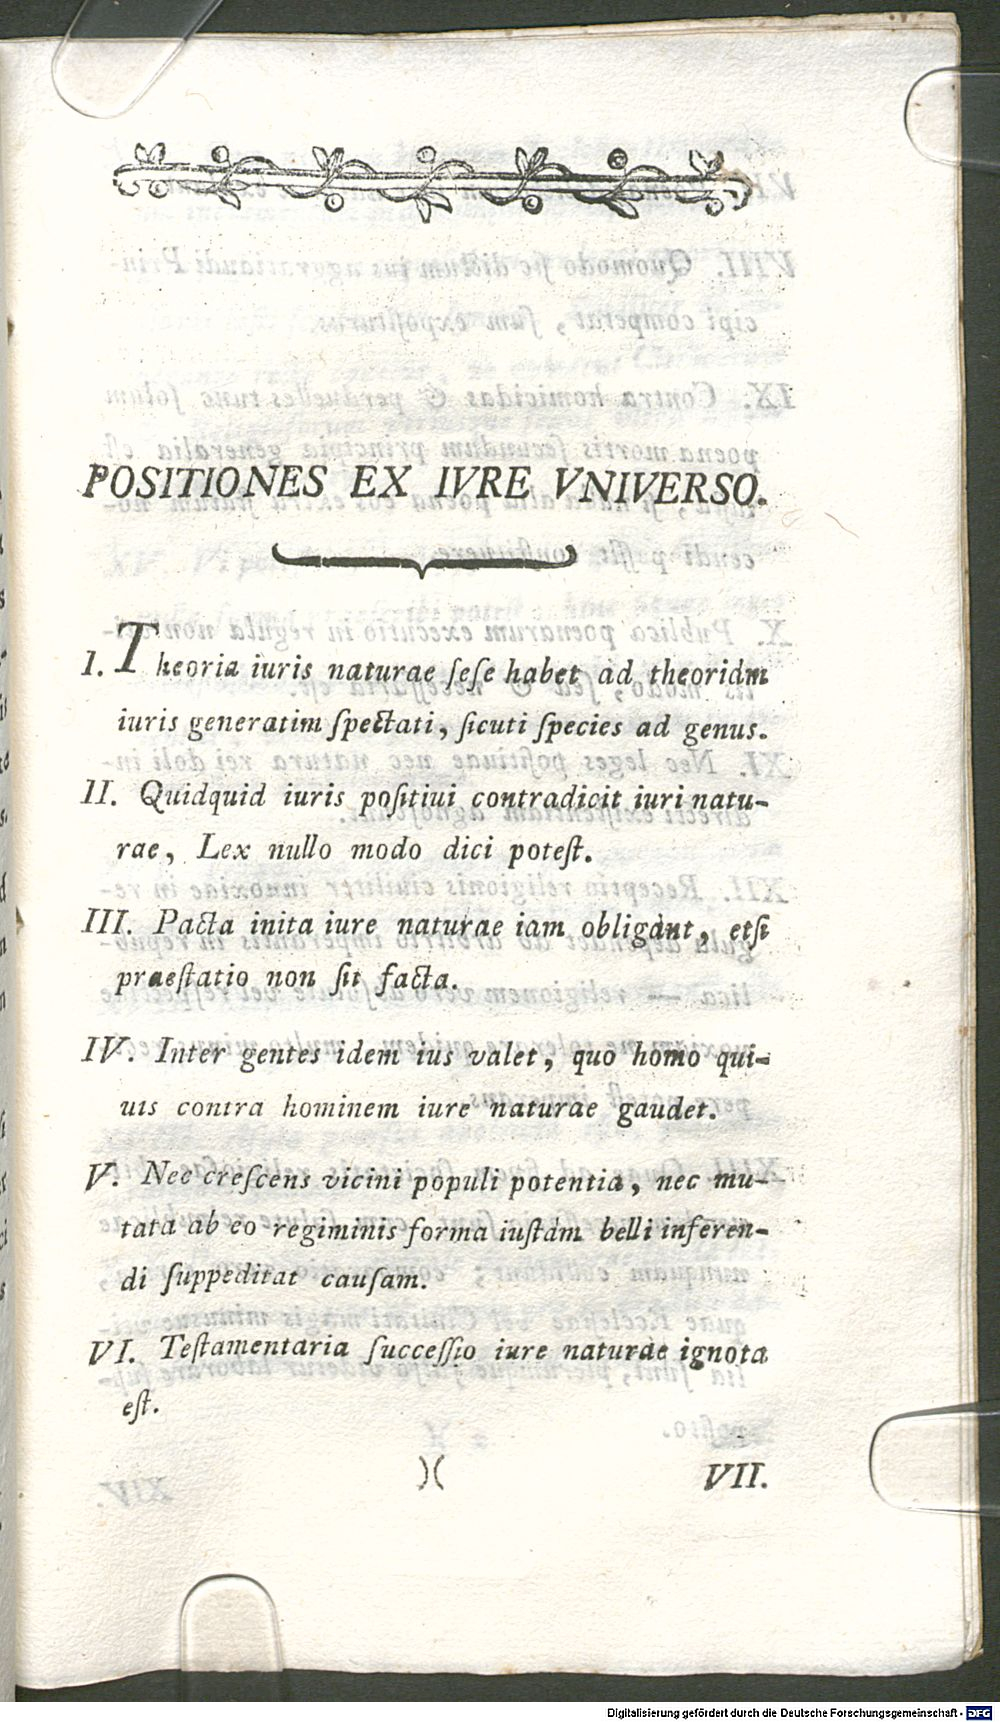 POSITIONES EX IVRE VNIVERSO.
I. Theoria iuris naturae ſeſe habet ad theoriam
iuris generatim ſpectati, ſicuti ſpecies ad genus.
II. Quidquid iuris poſitiui contradicit iuri natu-
rae, Lex nullo modo dici poteſt.
III. Pacta inita iure naturae iam obligant, etſi
praeſtatio non ſit facta.
IV. Inter gentes idem ius valet, quo homo qui-
uis contra hominem iure naturae gaudet.
V. Nec creſcens vicini populi potentia, nec mu-
tata ab eo regiminis forma iuſtam belli inferen-
di ſuppeditat cauſam.
VI. Teſtamentaria ſucceſſio iure naturae ignota
eſt.
)( VII.
Digitalisierung gefördert durch die Deutsche Forschungsgemeinschaft - DFG